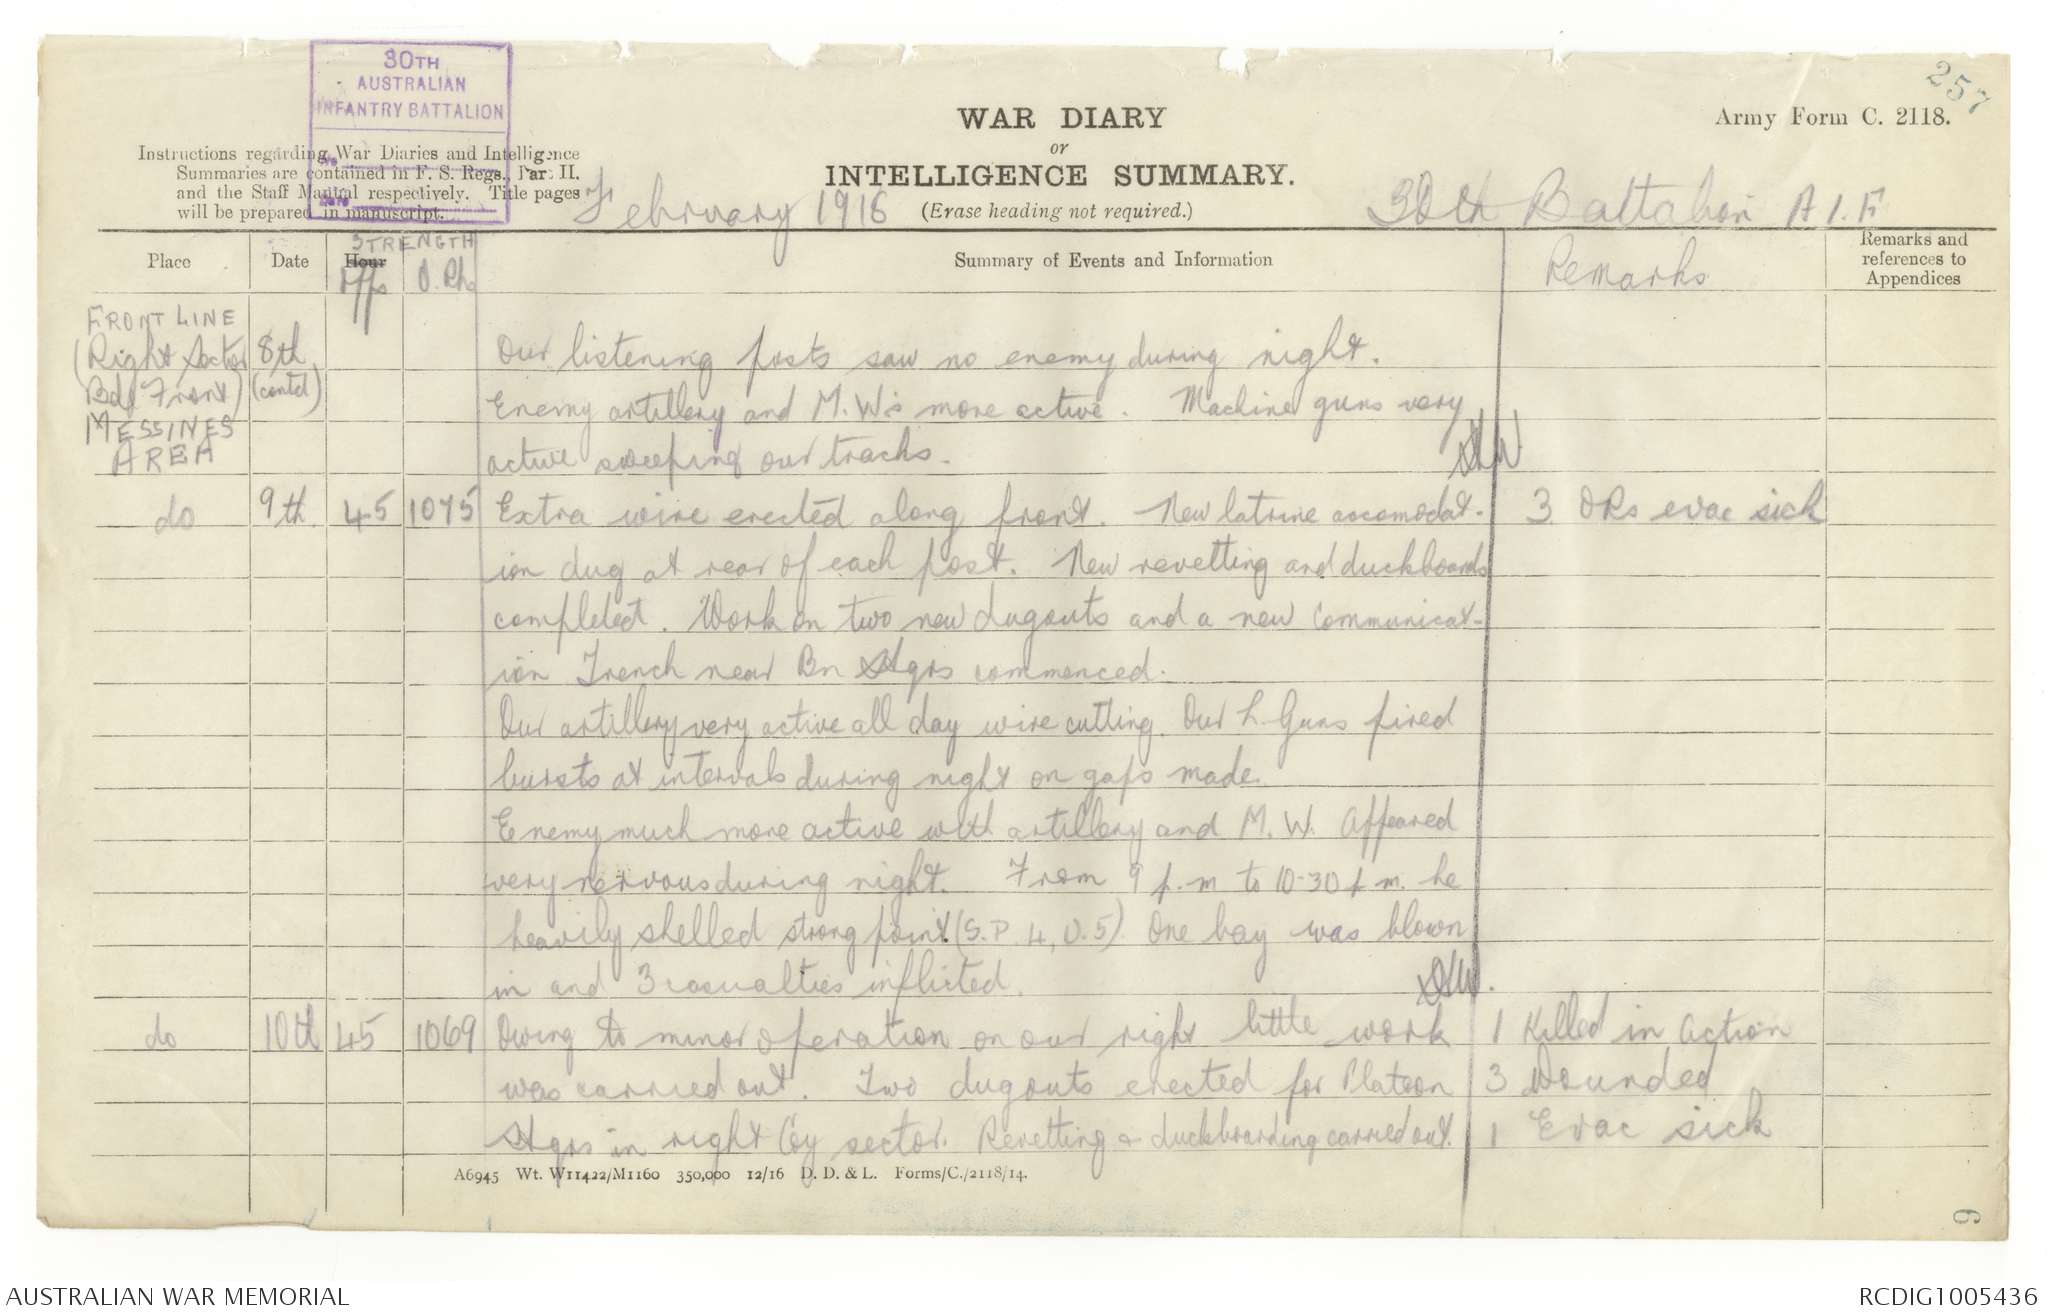 257
30TH
AUSTRALIAN
INFANTRY BATTALION
WAR DIARY
or
INTELLIGENCE SUMMARY.
(Erase heading not required.)
Army Form C. 2118.
Instructions regarding War Diaries and Intelligence
Summaries are contained in F. S. Regs., Part II.
and the Staff Manual respectively. Title pages
will be prepared in manuscript.
February 1918
30th Battalion A.I.F
Place
Date
Hour
STRENGTH
Offs
O.Rks
Summary of Events and Information
Remarks
Remarks and
references to
Appendices
FRONT LINE
(Right Sector
Bde Front)
MESSINES
AREA
8th
(contd)
Our listening posts saw no enemy during night.
Enemy artillery and M.W's more active. Machine guns very
active sweeping our tracks.
do 9th 45 1075 Extra wire erected along front. New latrine accomodat- 3 ORs evac sick
ion dug at rear of each post. New revetting and duckboards
completed. Work on two new dugouts and a new communicat-
ion Trench near Bn Hqrs commenced.
Our artillery very active all day wire cutting. Our L. Guns fired
bursts at intervals during night on gaps made.
Enemy much more active with artillery and M.W. Appeared
very nervous during night. From 9 p.m to 10-30 p.m. he
heavily shelled strong point (S.P. 4, U.5). One bay was blown
in and 3 casualties inflicted.
do 10th 45 1069 Owing to minor operation on our right little work 1 Killed in Action
was carried out. Two dugouts erected for Platoon 3 Wounded
Hqrs in right Coy sector. Revetting & duckboarding carried out. 1 Evac sick
A6945 Wt. W11422/M1160 350,000 12/16 D. D. & L. Forms/C./2118/14.
9
AUSTRALIAN WAR MEMORIAL
RCDIG1005436